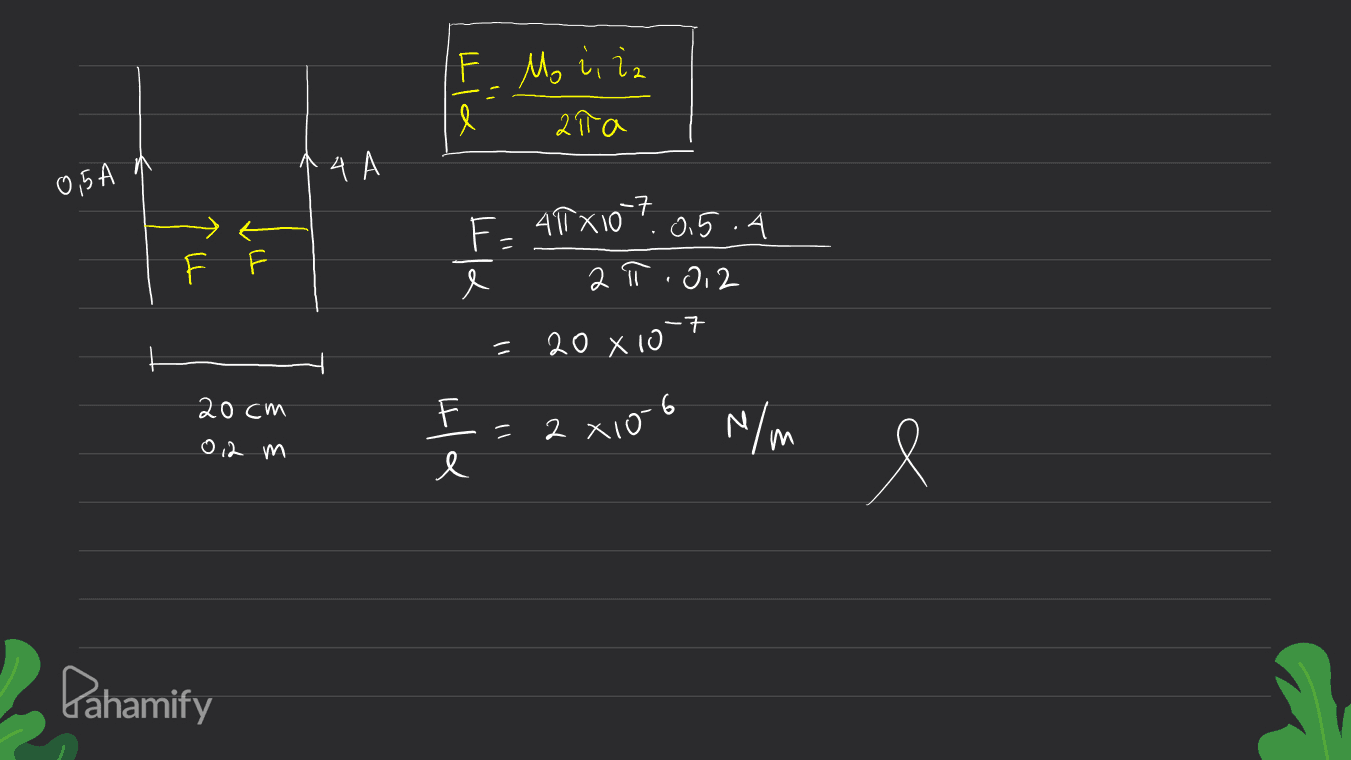 F/l = μ₀ i₁ i₂ / 2πa
0,5 A
4 A
F F
F/l = 4π x 10⁻⁷ . 0,5 . 4 / 2π . 0,2
= 20 x 10⁻⁷
20 cm
0,2 m
F/l = 2 x 10⁻⁶ N/m
Pahamify